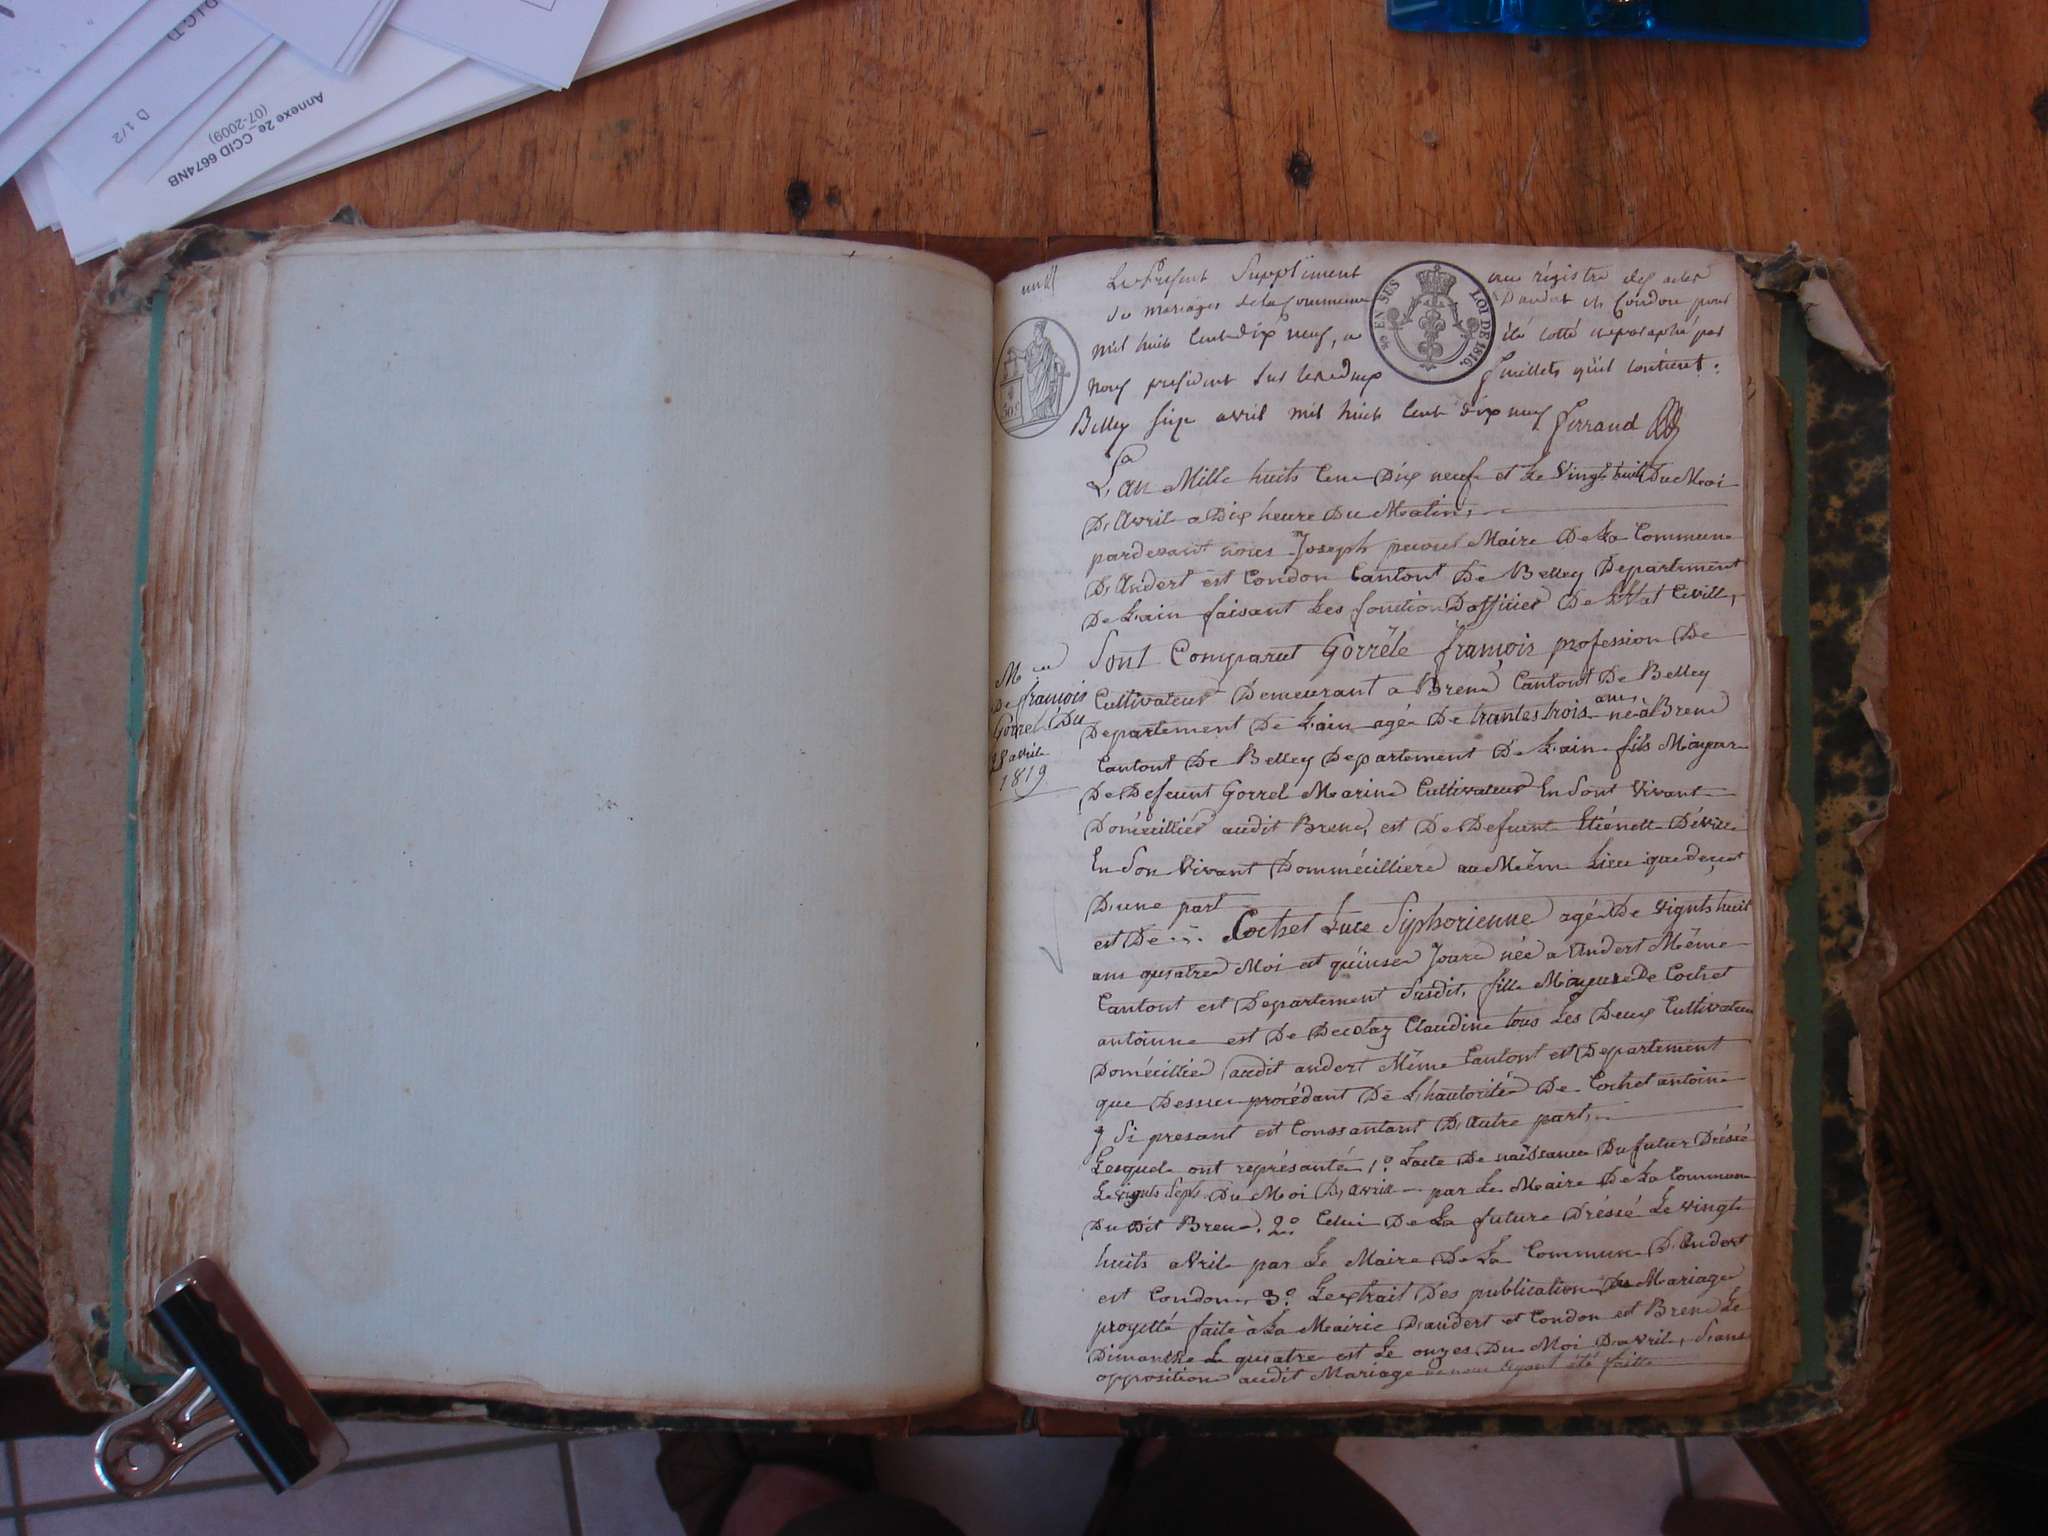 D.I.C.T)
D 1/2
Annexe 2e_CCID 6674NB
(07-2009)
Le Présent Suppliment au régistre des actes
de mariages de la Commune d'andert et Condon pour
mil huit Cent dix neuf, a été cotté et paraphé par
Nous président sur les deux feuillets qu'il contient.
Belley six avril mil huit Cent dix neuf Ferrand
EN SES
LOI DE 1816.
50 c
L'an Mille huits Cent Dix neuf et Le Vingt huit Du Moi
D'Avril a Dix heure Du Matin,
pardevant nous Joseph Maire De La Commune
D'Andert est Condon Cantont De Belley Departement
De L'ain faisant Les fonction D'officier De L'Etat Civille,
Sont Comparut Gorrèle françois profession De
Cultivateur Demeurant a Bren Cantont De Belley
Departement De L'ain agé De trantes trois ans né à Bren
Cantont De Belley Departement De L'ain fils Mayar
De Defeunt Gorrel Marin Cultivateur En Sont Vivant
Domécillier audit Bren, est De Defuent Etiénette Déville
En Son Vivant Domméciliere au Mêm Lieu que
D'une part
est De Cochet Luce Siphorienne agé De Vignts huit
ans quatre Moi est quinse Jour née a Andert Même
Cantont est Departement Susdit, fille Mayeure De Cochet
antoinne est De Decolaz Claudine tous Les Deux Cultivateur
Domécillié audit andert Même Cantont est Departement
que Dessue procédant De L'hautorité De Cochet antoine
y Si presant est Conssantant D'Autre part,
Lesquel ont représanté 1º L'acte De naissance Du futur Dréssé
Le vignts Sept Du Moi D'avril par Le Maire De La Commune
Du Dit Bren. 2º Celui De La future Dréssé Le vingt
huits avril par Le Maire De La Commune D'Andert
est Condon 3º L'extrait Des publication De Mariage
progetté faite à La Mairie D'andert et Condon est Bren Le
Dimanche Le quatre est Le onzes Du Moi D'avril, Sans
opposition audit Mariage ne nous Ayant été faitte
M
De françois
Gorrel Du
28 avril
1819